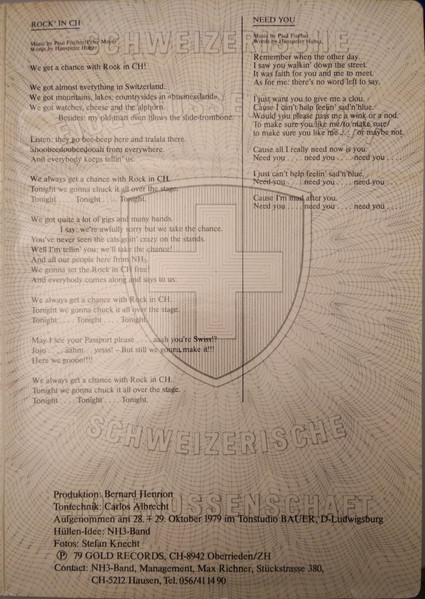 SCHWEIZERISCHE
ROCK' IN CH
Words by Hanspeter Huber
We get a chance with Rock in CH!
We got almost everything in Switzerland.
We got mountains, lakes, countrysides in «businessland».
We got watches, cheese and the alphorn.
Besides: my old man even blows the slide-trombone.
Listen: they go bee-beep here and tralala there.
from everywhere.
And everybody keeps tellin' us:
We always get a chance with Rock in CH.
Tonight we gonna chuck it all over the stage.
Tonight . . . . Tonight . . . . Tonight.
We got quite a lot of gigs and many hands.
I say: we're awfully sorry but we take the chance.
You've never seen the cats goin' crazy on the stands.
Well I'm tellin' you: we'll take the chance!
And all our people here from NH3,
We gonna set the Rock in CH free!
And everybody comes along and says to us:
We always get a chance with Rock in CH.
Tonight we gonna chuck it all over the stage.
Tonight . . . . Tonight . . . . Tonight.
May I see your Passport please . . . . aaah you're Swiss!?
Jojo . . . . äähm . . yesss! – But still we gonna make it!!!
Here we
We always get a chance with Rock in CH.
Tonight we gonna chuck it all over the stage.
Tonight . . . . Tonight . . . . Tonight.
NEED YOU
Music by Paul Fischer
Words by Hanspeter Huber
Remember when the other day.
I saw you walkin' down the street.
It was faith for you and me to meet.
As for me: there's no word left to say.
I just want you to give me a clou.
Cause I can't help feelin' sad'n'blue.
Would you please pass me a wink or a nod.
To make sure you like me/to make sure/
to make sure you like me . . . / or maybe not.
Cause all I really need now is you.
Need you . . . . need you . . . . need you . . . .
I just can't help feelin' sad'n'blue,
Need you . . . . need you . . . . need you . . . .
Cause I'm mad after you.
Need you . . . . need you . . . . need you . . . .
SCHWEIZERISCHE
Produktion: Bernard Henrion
Tontechnik: Carlos Albrecht
Aufgenommen am 28. + 29. Oktober 1979 im Tonstudio BAUER, D-Ludwigsburg
Hüllen-Idee: NH3-Band
Fotos: Stefan Knecht
Ⓟ 79 GOLD RECORDS, CH-8942 Oberrieden/ZH
Contact: NH3-Band, Management, Max Richner, Stückstrasse 380,
CH-5212 Hausen, Tel. 056/41 14 90